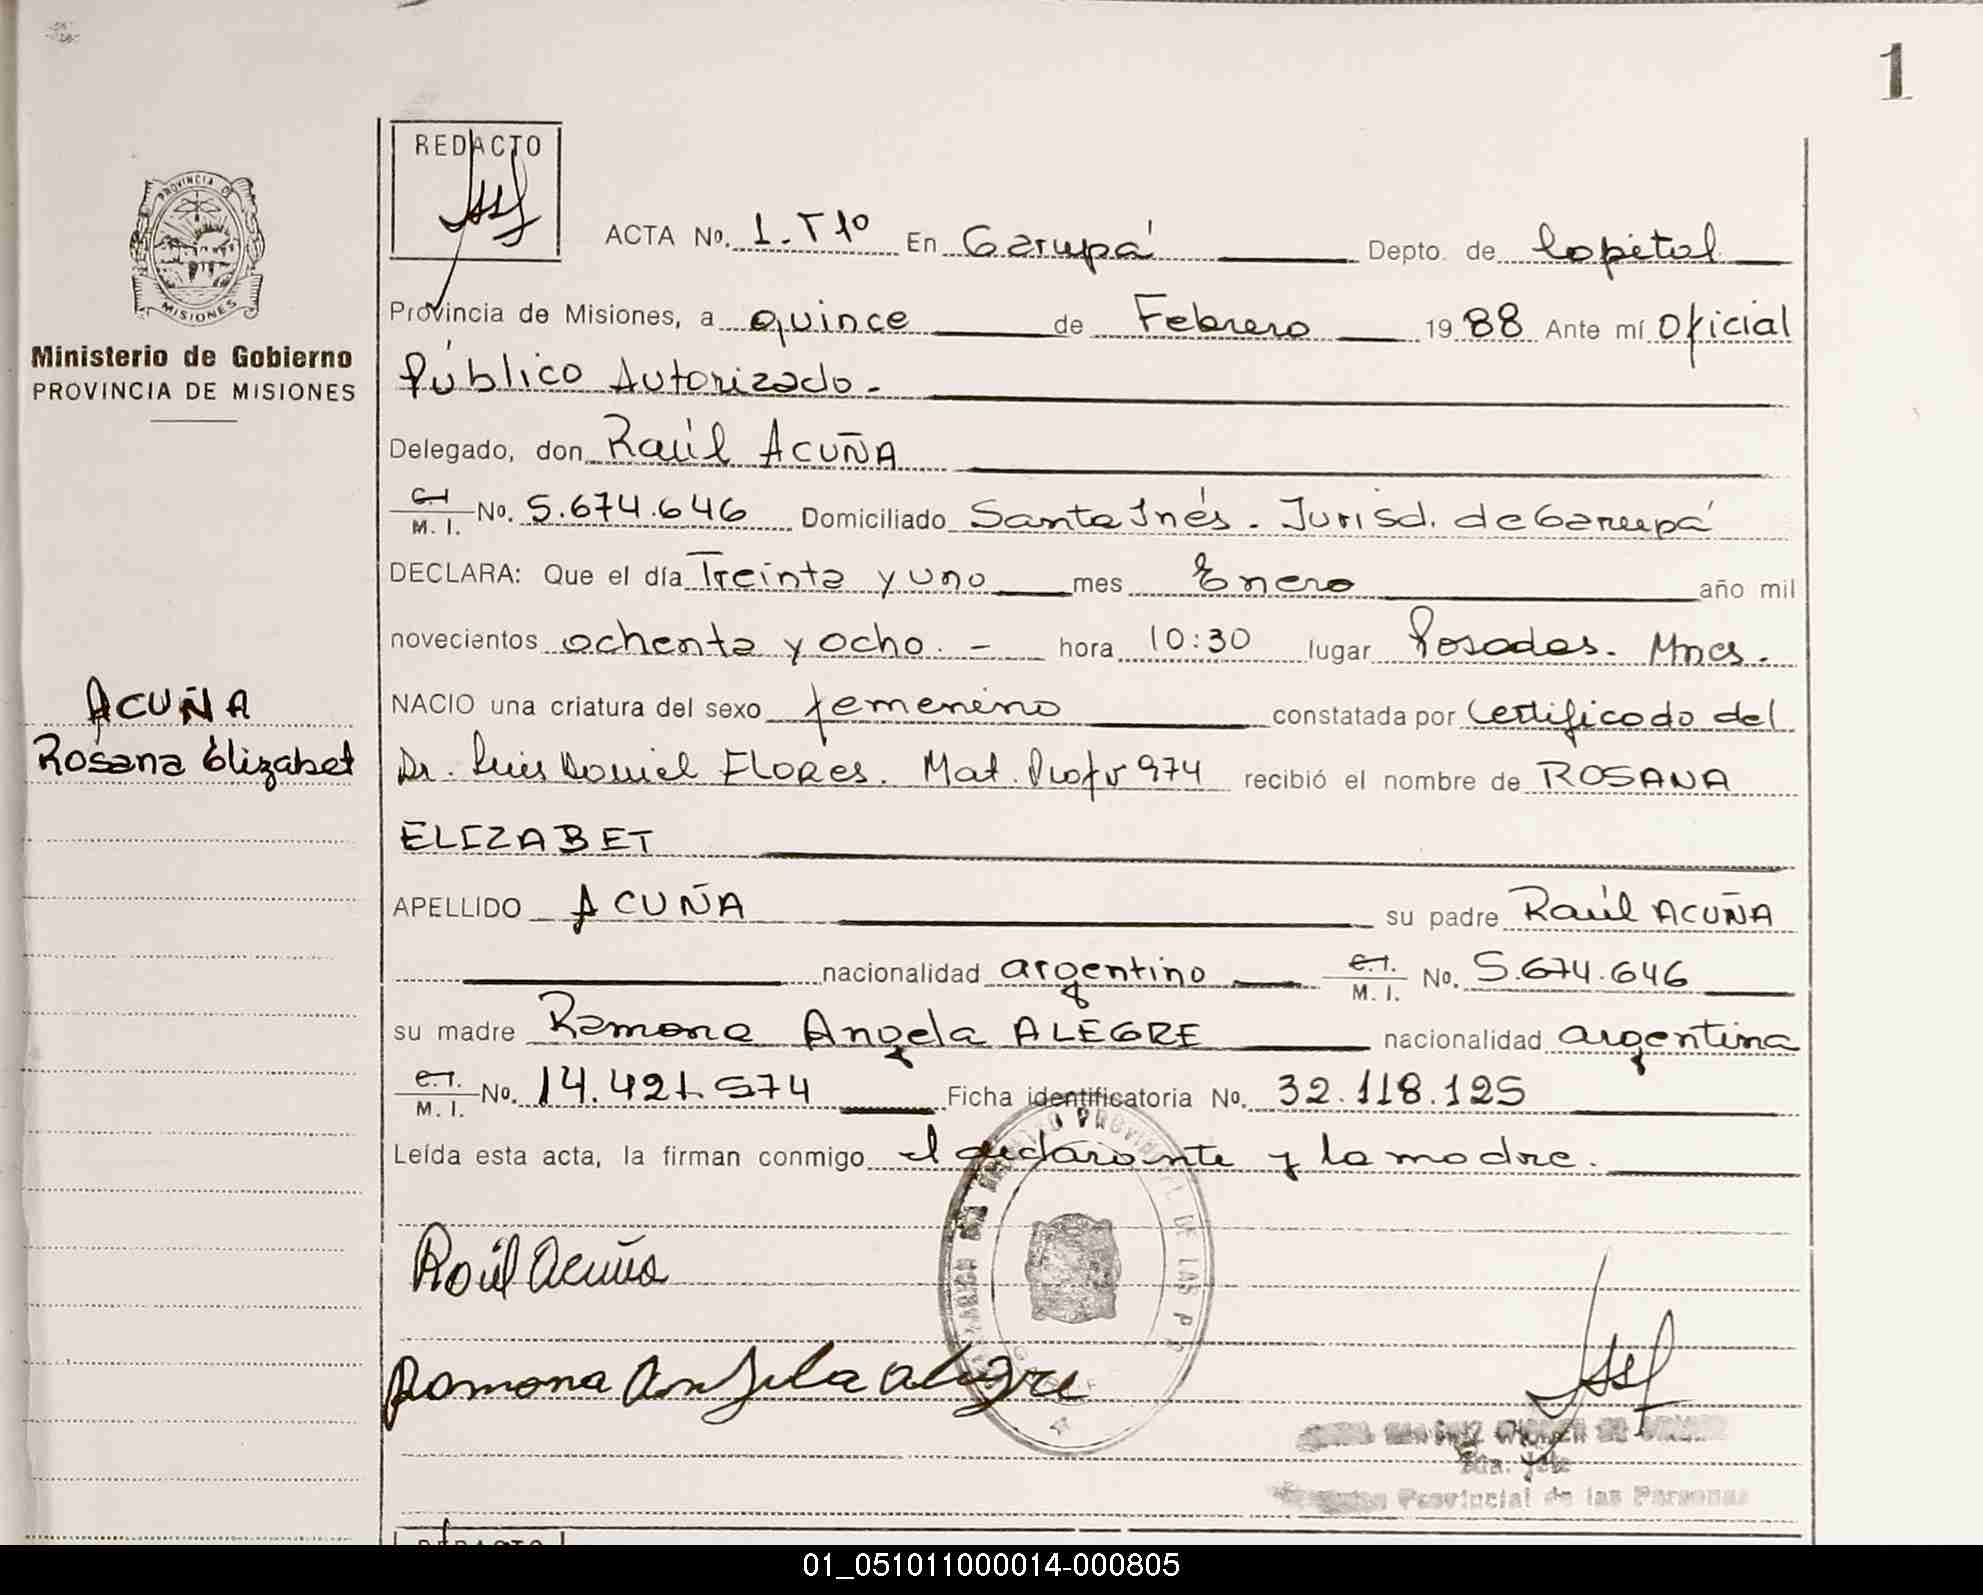 1
PROVINCIA DE
MISIONES
Ministerio de Gobierno
PROVINCIA DE MISIONES
ACUÑA
Rosana Elizabet
REDACTO
ACTA No. 1.T1º En Garupá Depto. de Capital
Provincia de Misiones, a quince de Febrero 1988 Ante mí Oficial
Público Autorizado.-
Delegado, don Raúl ACUÑA
C.I. M.I. No. 5.674.646 Domiciliado Santa Inés. Jurisd. de Garupá
DECLARA: Que el día Treinta y uno mes Enero año mil
novecientos ochenta y ocho.- hora 10:30 lugar Posadas. Mnes.
NACIO una criatura del sexo femenino constatada por Certificado del
Dr. Luis Daniel FLORES. Mat. Prof 974 recibió el nombre de ROSANA
ELIZABET
APELLIDO ACUÑA su padre Raúl ACUÑA
nacionalidad argentino C.I. M.I. No. 5.674.646
su madre Ramona Angela ALEGRE nacionalidad argentina
C.I. M.I. No. 14.421.574 Ficha identificatoria No. 32.118.125
Leída esta acta, la firman conmigo el declarante y la madre.
Raúl Acuña
Ramona Angela Alegre
PROVINCIAL DE LAS P
Provincial de las Personas
REDACTO
01_051011000014-000805